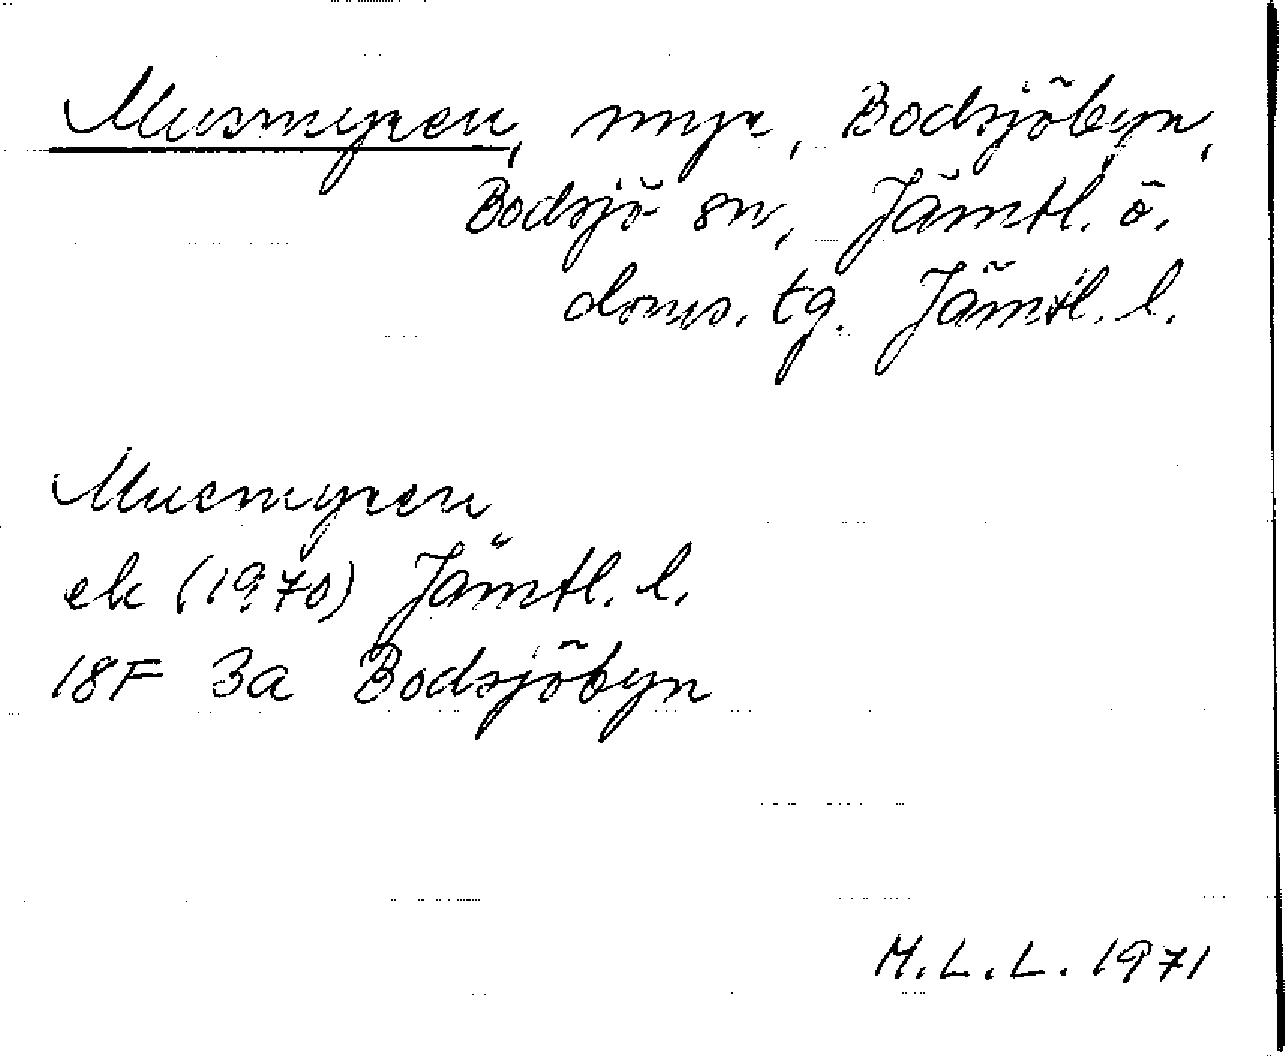 Musmyren, myr, Bodsjöbyn,
Bodsjö sn, Jämtl. ö.
doms. tg. Jämtl. l.
Musmyren
ek (1970) Jämtl. l.
18F 3a Bodsjöbyn
M.L.L. 1971